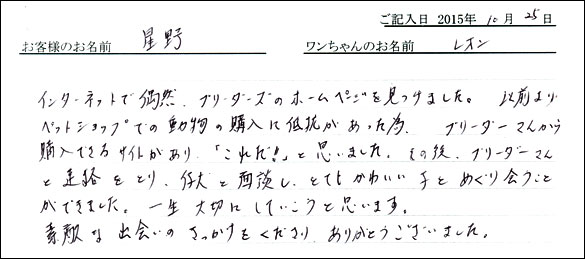 ご記入日 2015年 10月 25日
お客様のお名前 星野 ワンちゃんのお名前 レオン
インターネットで偶然、ブリーダーズのホームページを見つけました。 以前より
ペットショップでの動物の購入に低抗があった為、 ブリーダーさんから
購入できるサイトがあり、「これだ!」と思いました。その後、ブリーダーさん
と連絡をとり、仔犬と面談し、とてもかわいい子とめぐり会うこと
ができました。一生大切にしていこうと思います。
素敵な出会いのきっかけをくださり、ありがとうございました。